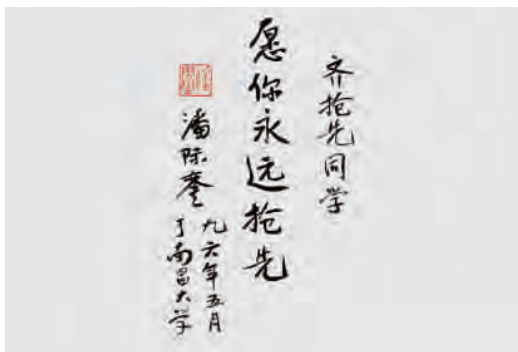 齐抢先同学
愿你永远抢先
潘际銮
九六年五月
于南昌大学